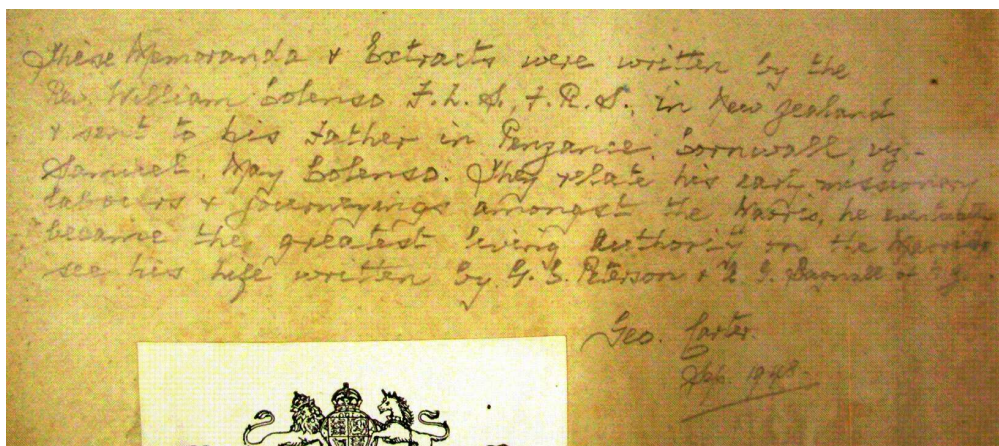 These Memoranda & Extracts were written by the
Rev. William Colenso F.L.S., F.R.S., in New Zealand
& sent to his Father in Penzance, Cornwall, viz-
Samuel May Colenso. They relate his early missionary
labours & journeyings amongst the Maoris, he eventually
became the greatest living authority on the Maoris
see his life written by G. C. Peterson & A. G. Bagnall of N.Z.
Geo. Carter.
Sep. 1948.